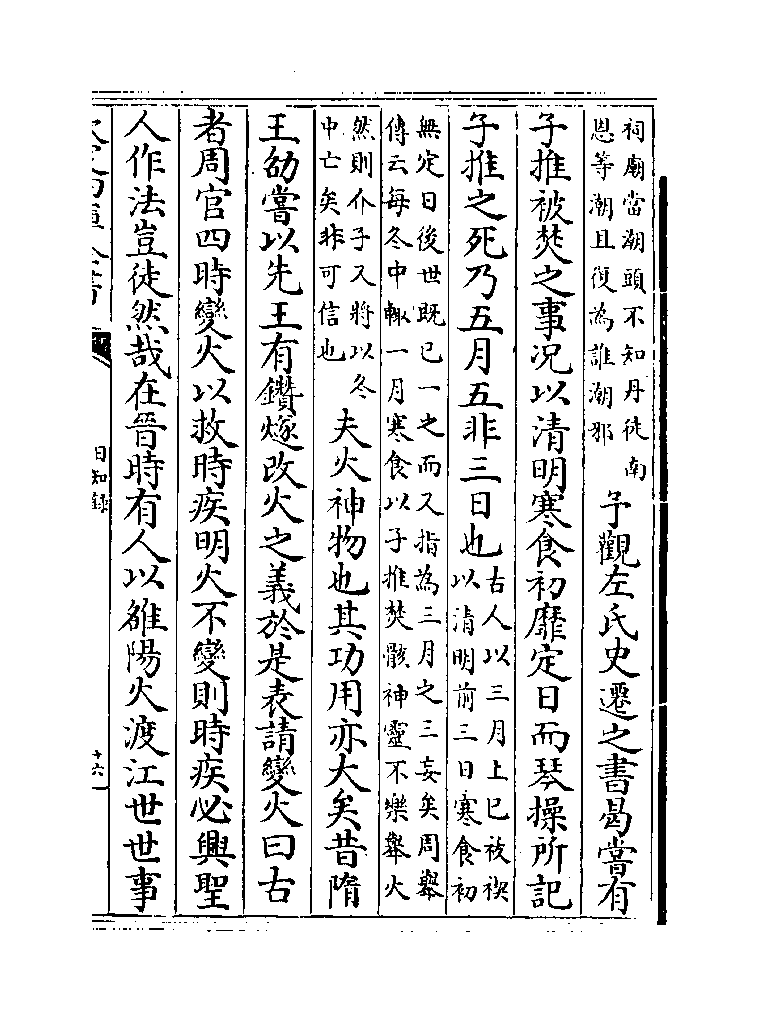 祠廟當潮頭不知丹徒南
恩等潮且復為誰潮邪
予觀左氏史遷之書曷嘗有
子推被焚之事况以清明寒食初靡定日而琴操所記
子推之死乃五月五非三日也
古人以三月上巳被禊
以清明前三日寒食初
無定日後世既已一之而又指為三月之三妄矣周舉
傳云每冬中輙一月寒食以子推焚骸神靈不樂舉火
然則介子又將以冬
中亡矣非可信也
夫火神物也其功用亦大矣昔隋
王劭嘗以先王有鑽燧改火之義於是表請變火曰古
者周官四時變火以救時疾明火不變則時疾必興聖
人作法豈徒然哉在晉時有人以雒陽火渡江世世事
欽定四庫全書
日知錄
十六